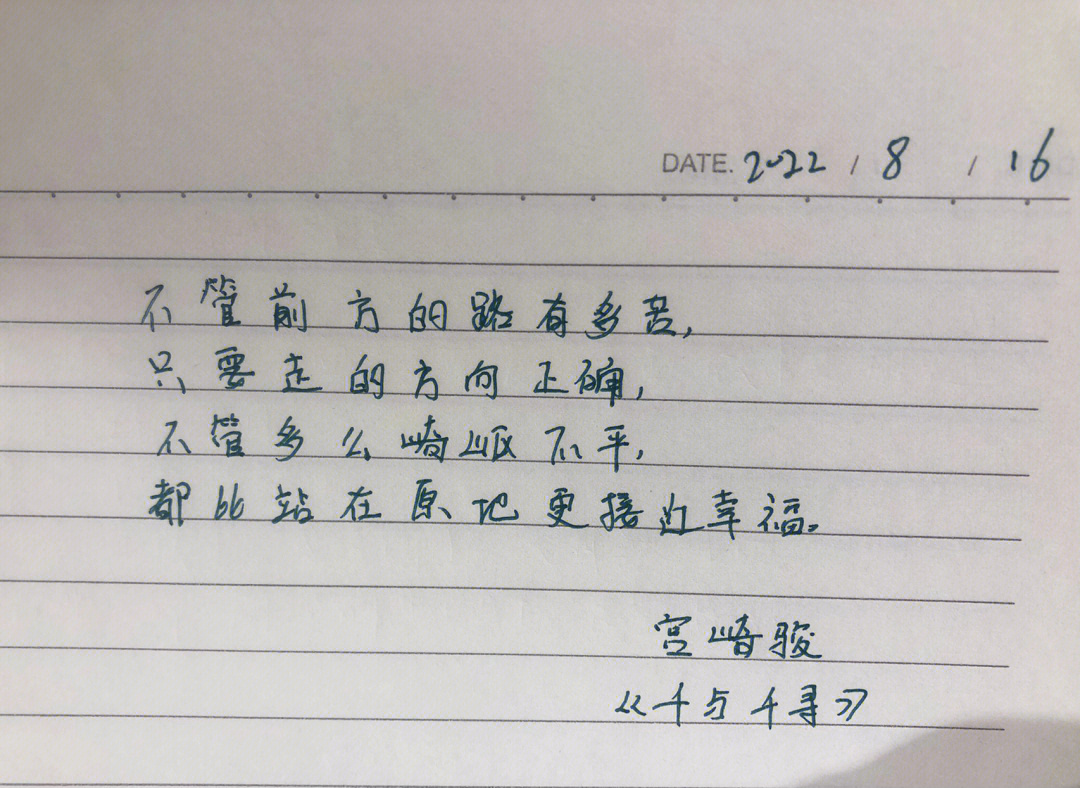 DATE. 2022 / 8 / 16
不管前方的路有多苦,
只要走的方向正确,
不管多么崎岖不平,
都比站在原地更接近幸福。
宫崎骏
《千与千寻》